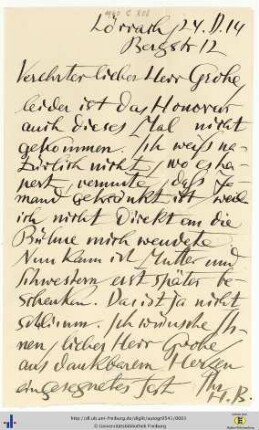 Lörrach, 24. II. 14
Bergstr 12
Verehrter lieber Herr Grohe
leider ist das Honorar
auch dieses Mal nicht
gekommen. Ich weiß na-
türlich nicht, wo es ha-
pert, vermute, daß Je-
mand gekränkt ist, weil
ich nicht direkt an die
Bühne mich wendete.
Nun kann ich Mutter und
Schwestern erst später be-
schenken. Das ist ja nicht
schlimm. Ich wünsche Ih-
nen, lieber Herr Grohe
aus dankbarem Herzen
ein gesegnetes Fest Ihr
H. B.
© Universitätsbibliothek Freiburg